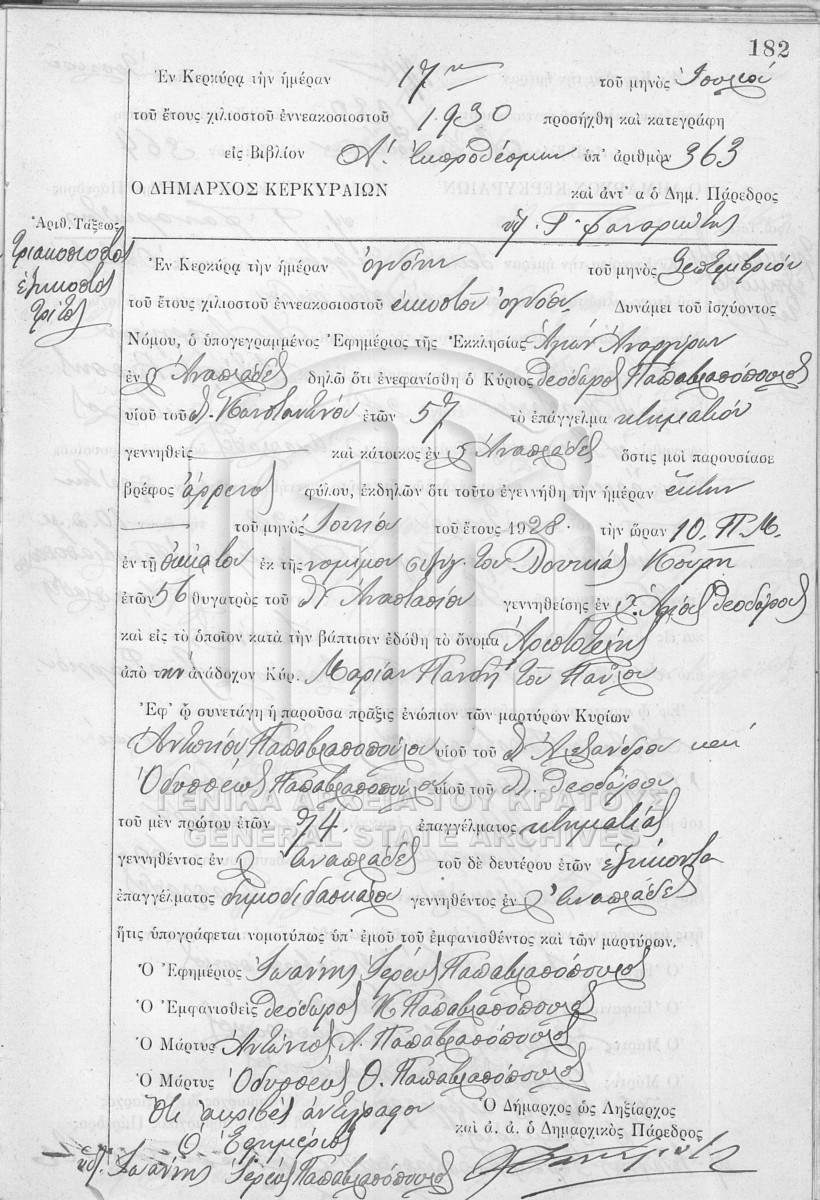 182
Ἐν Κερκύρᾳ τὴν ἡμέραν 17ην τοῦ μηνὸς Ἰουλίου
τοῦ ἔτους χιλιοστοῦ ἐννεακοσιοστοῦ 1930 προσήχθη καὶ κατεγράφη
εἰς Βιβλίον Α. Ἐκπροθέσμων ὑπ' ἀριθμὸν 363
Ο ΔΗΜΑΡΧΟΣ ΚΕΡΚΥΡΑΙΩΝ καὶ ἀντ' α ὁ Δημ. Πάρεδρος
Ἀριθ. Τάξεως
τριακοσιοστὸς
ἑξηκοστὸς
τρίτος
Ἐν Κερκύρᾳ τὴν ἡμέραν ὀγδόην τοῦ μηνὸς Σεπτεμβρίου
τοῦ ἔτους χιλιοστοῦ ἐννεακοσιοστοῦ εἰκοστοῦ ὀγδόου Δυνάμει τοῦ ἰσχύοντος
Νόμου, ὁ ὑπογεγραμμένος Ἐφημέριος τῆς Ἐκκλησίας Ἁγίων Ἀναργύρων
ἐν Ἀναπλάδες δηλῶ ὅτι ἐνεφανίσθη ὁ Κύριος Θεόδωρος Παπαβλασόπουλος
υἱοῦ τοῦ Κωνσταντίνου ἐτῶν 57 τὸ ἐπάγγελμα κτηματίου
γεννηθεὶς καὶ κάτοικος ἐν Ἀναπλάδες ὅστις μοὶ παρουσίασε
βρέφος ἄρρενος φύλου, ἐκδηλῶν ὅτι τοῦτο ἐγεννήθη τὴν ἡμέραν ἕκτην
τοῦ μηνὸς Ἰουνίου τοῦ ἔτους 1928. τὴν ὥραν 10. Π.Μ.
ἐν τῇ οἰκίᾳ του ἐκ τῆς νομίμου συζύγ. του Λουκίας Κουρῆ
ἐτῶν 56 θυγατρὸς τοῦ Ἀναστασίου γεννηθείσης ἐν Ἁγίους Θεοδώρους
καὶ εἰς τὸ ὁποῖον κατὰ τὴν βάπτισιν ἐδόθη τὸ ὄνομα Ἀριστοτέλης
ἀπὸ την ἀνάδοχον Κύρ. Μαρίαν Πανδῆ τοῦ Παύλου
Ἐφ' ᾧ συνετάγη ἡ παροῦσα πρᾶξις ἐνώπιον τῶν μαρτύρων Κυρίων
Ἀντωνίου Παπαβλασοπούλου υἱοῦ τοῦ Ἀλεξάνδρου καὶ
Ὀδυσσέως Παπαβλασοπούλου υἱοῦ τοῦ Θεοδώρου
ΓΕΝΙΚΑ ΑΡΧΕΙΑ ΤΟΥ ΚΡΑΤΟΥΣ
τοῦ μὲν πρώτου ἐτῶν 74. ἐπαγγέλματος κτηματίας
GENERAL STATE ARCHIVES
γεννηθέντος ἐν Ἀναπλάδες τοῦ δὲ δευτέρου ἐτῶν ἑξήκοντα
ἐπαγγέλματος δημοδιδασκάλου γεννηθέντος ἐν Ἀναπλάδες
ἥτις ὑπογράφεται νομοτύπως ὑπ' ἐμοῦ τοῦ ἐμφανισθέντος καὶ τῶν μαρτύρων.
Ὁ Ἐφημέριος Ἰωάννης Ἱερεὺς Παπαβλασόπουλος
Ὁ Ἐμφανισθεὶς Θεόδωρος Κ. Παπαβλασόπουλος
Ὁ Μάρτυς Ἀντώνιος Α. Παπαβλασόπουλος
Ὁ Μάρτυς Ὀδυσσεὺς Θ. Παπαβλασόπουλος
Ὅτι ἀκριβὲς ἀντίγραφον
Ὁ Ἐφημέριος
Ὁ Δήμαρχος ὡς Ληξίαρχος
καὶ ἀ. ἀ. ὁ Δημαρχικὸς Πάρεδρος
Ἰωάννης Ἱερεὺς Παπαβλασόπουλος